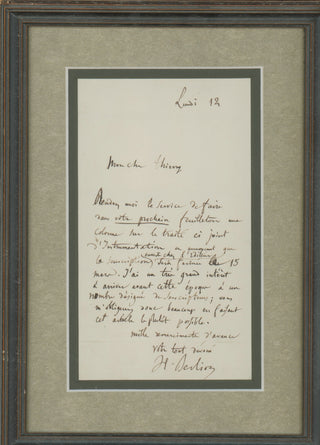 Lundi 12
Mon cher Thierry
Rendez moi le service de faire
dans votre prochain feuilleton une
colonne sur le traité ci joint
d'Instrumentation en annonçant que
la souscription sera fermée le 15
chez l'éditeur
mars. J'ai un très grand intérêt
à arriver avant cette époque à un
nombre désigné de souscripteurs; vous
m'obligerez donc beaucoup en faisant
cet article le plutôt possible.
mille remerciements d'avance
votre tout dévoué
H. Berlioz